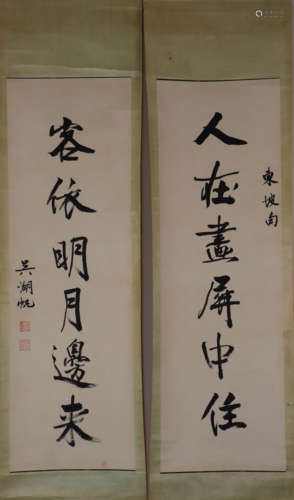 人在畫屏中住
東坡句
客依明月邊来
吴湖帆